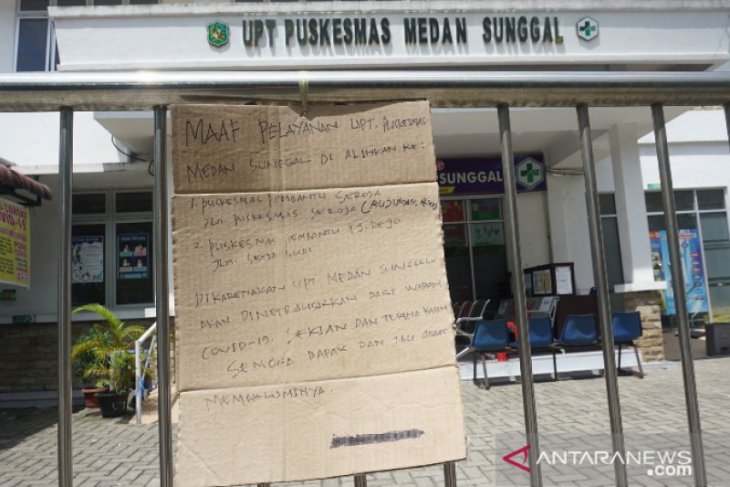 UPT PUSKESMAS MEDAN SUNGGAL
SUNGGAL
MAAF PELAYANAN UPT. PUSKESMAS
MEDAN SUNGGAL DI ALIHKAN KE:
1. PUSKESMAS PEMBANTU SEROJA
JLN PUSKESMAS SEROJA
2. PUSKESMAS PEMBANTU PJ. REJO
JLN.
DIKARENAKAN UPT MEDAN SUNGGAL
AKAN DINETRALISIRKAN DARI WABAH
COVID-19. SEKIAN DAN TERIMA KASIH
SEMOGA BAPAK DAN IBU DAPAT
MEMAKLUMINYA.
ANTARANEWS
.com